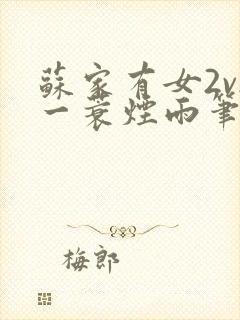 蘇家有女2v
一蓑煙雨筆
梅郎